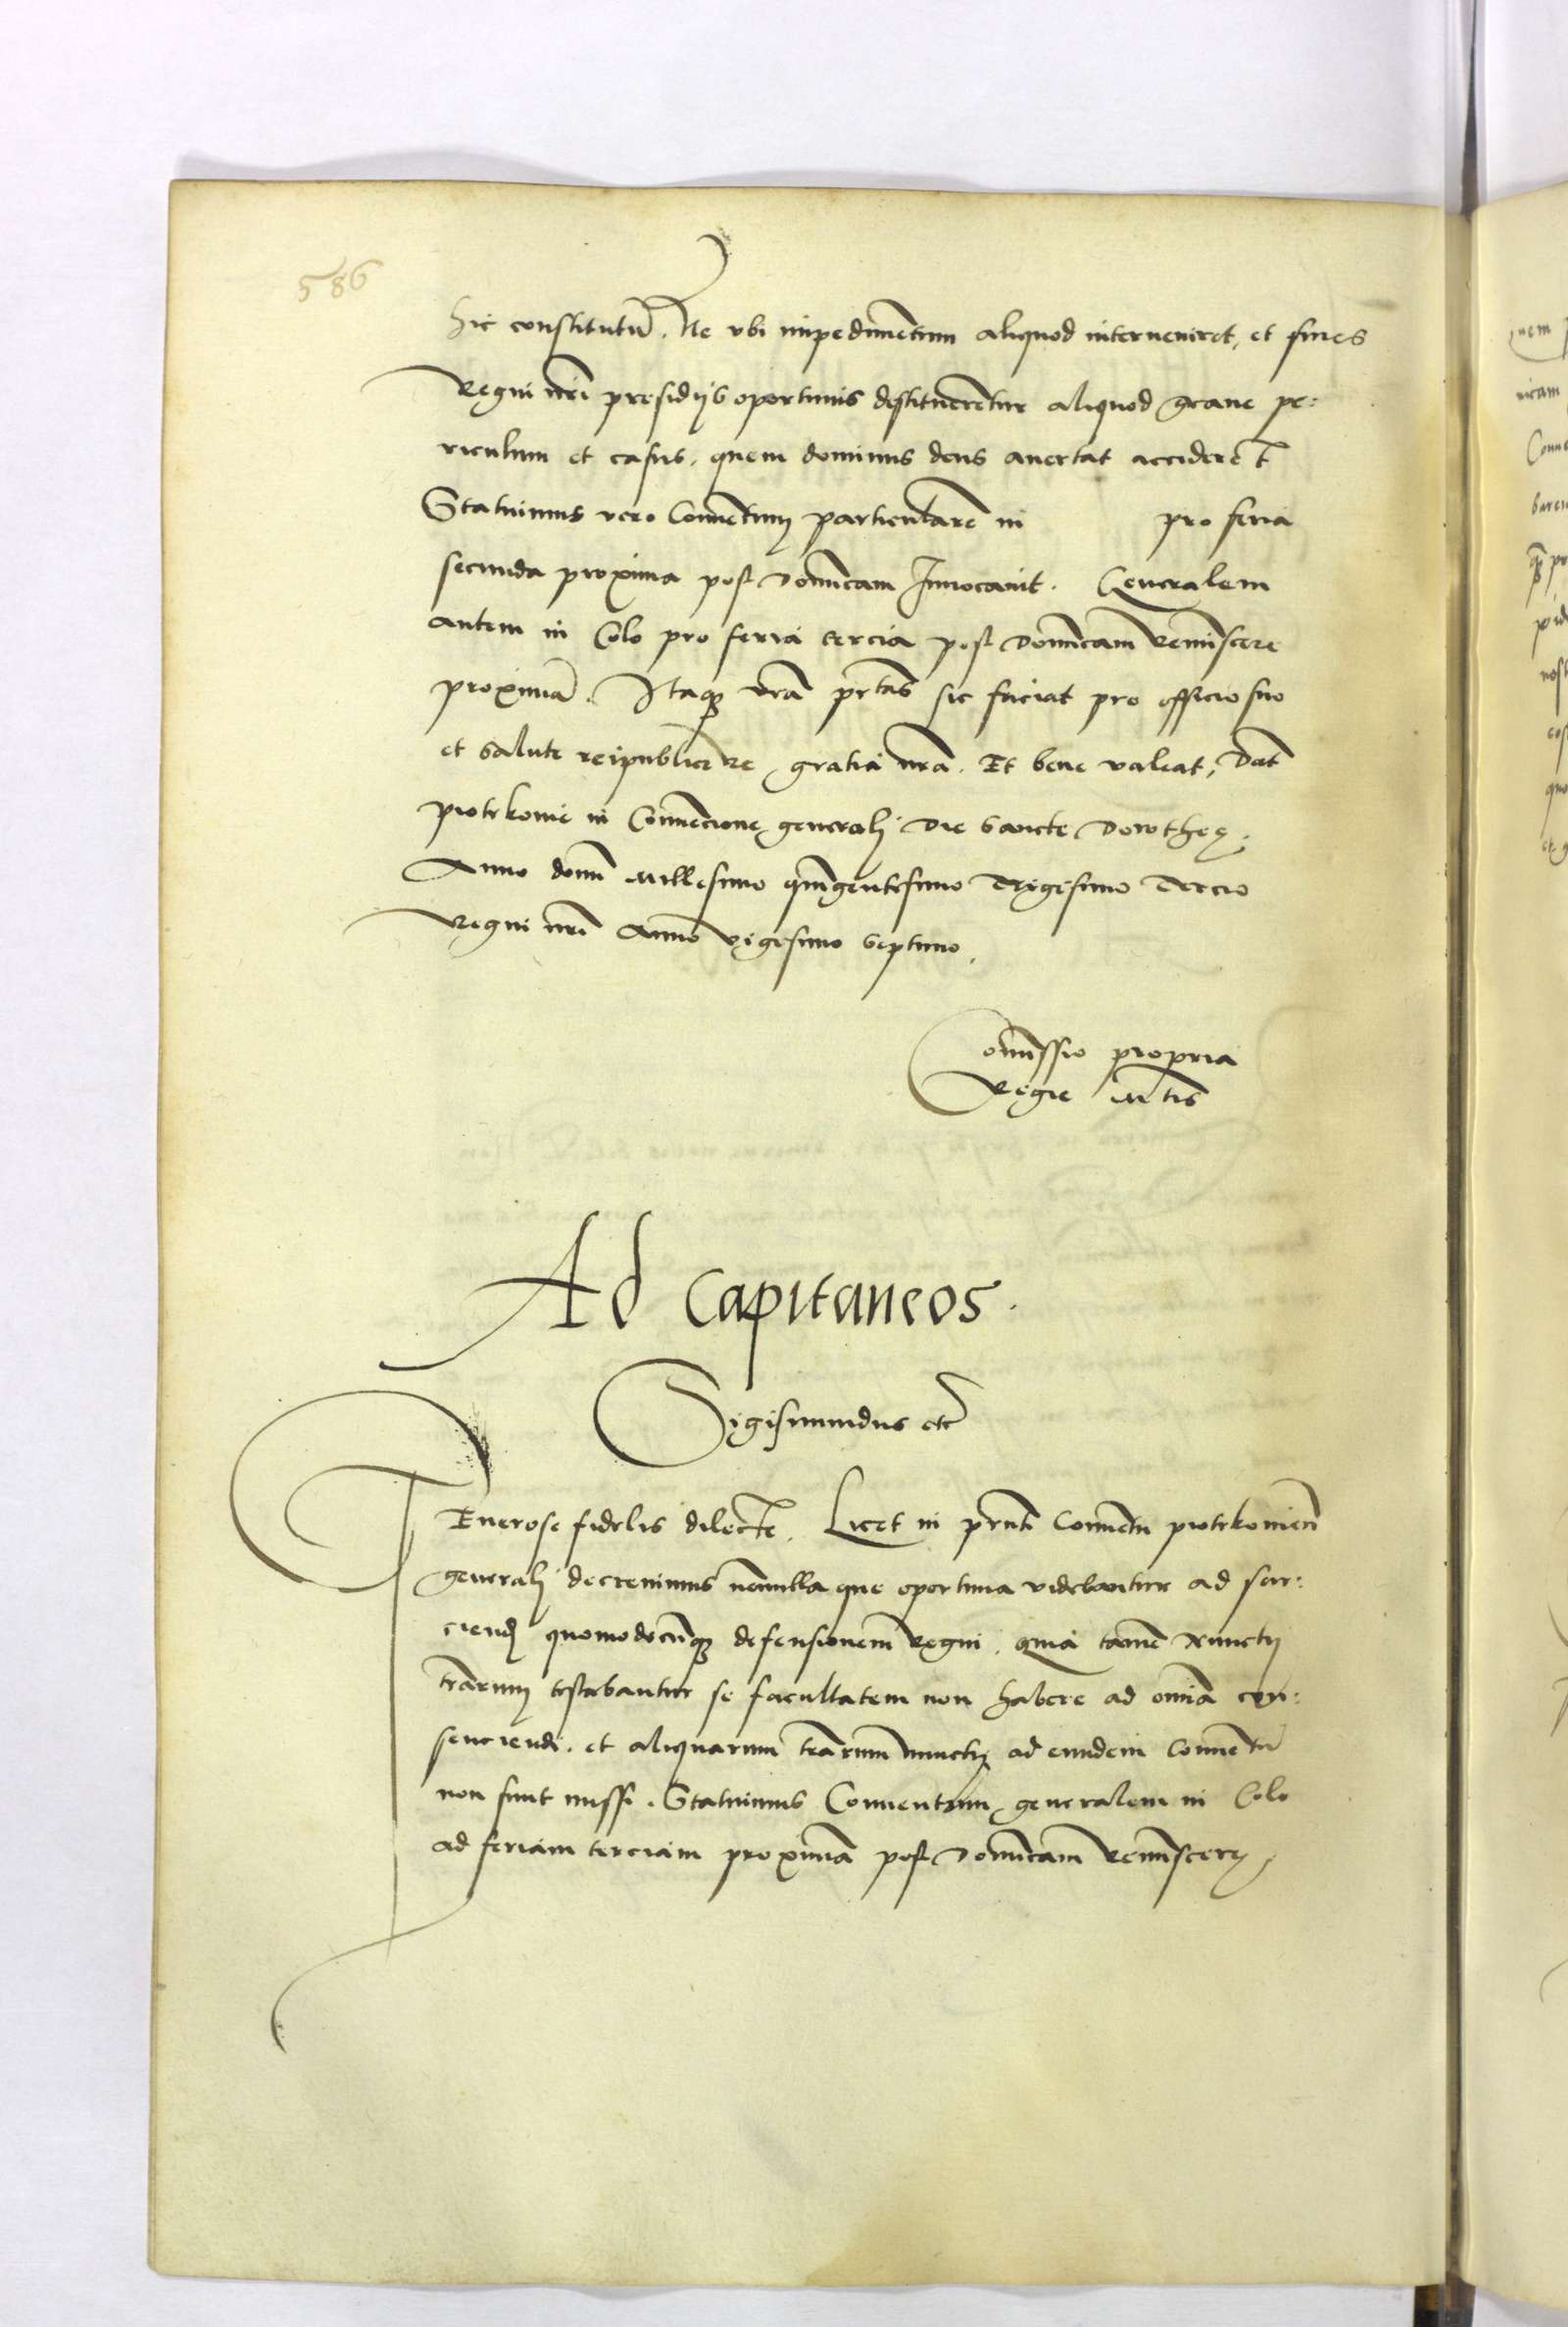 586
hic constitutu̅. Ne vbi impedime̅tum aliquod interueniret, et fines
Regni nr̅i presidijs oportunis destituere̅tur aliquod graue pe:
riculum et casus, quem dominus deus auertat accidere̅t
Statuimus vero Conue̅tum particulare̅ in pro feria
secunda proxima post Do̅nicam Inuocauit. Generalem
autem in Colo pro feria tercia post Do̅nicam Remi̅scere
proxima̅. Itaq3 vr̅a pr̅tas sic faciat pro officio suo
et salute reipublice ac gratia nr̅a. Et bene valeat, Dat̅
piotrkouie in Conue̅cione generali die Sancte Dorothee,
Anno domi̅ Millesimo qui̅gentesimo Trigesimo Tercio
Regni nr̅i Anno vigesimo septimo.
Com̅issio propria
Regie M̅tis
Ad Capitaneos.
Sigismundus etc̅
GEnerose fidelis dilecte̅. Licet in pr̅nti Conue̅tu piotrkouien̅
generali decreuimus no̅nulla que oportuna videbantur ad sar:
ciend̅ quomodocu̅q3 defensionem Regni, quia tame̅ Nunctij
tr̅arum testabantur se facultatem non habere ad om̅ia con:
senciendi, et aliquarum tr̅arum nunctij ad eundem conuentu̅
non sunt missi. Statuimus Conuentum generalem in Colo
ad feriam terciam proxima̅ post Do̅nicam Remi̅scere,